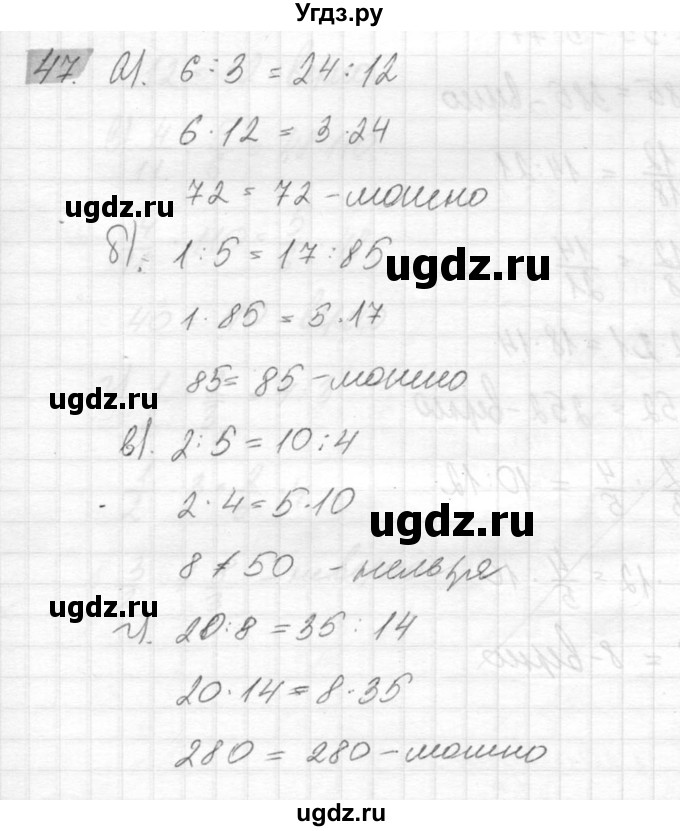 Угдз.ру
47. а). 6 : 3 = 24 : 12
6 · 12 = 3 · 24
72 = 72 - можно
ugdz.ru
б). 1 : 5 = 17 : 85
ugdz.ru
1 · 85 = 5 · 17
85 = 85 - можно
ugdz.ru
в). 2 : 5 = 10 : 4
2 · 4 = 5 · 10
ugdz.ru
8 ≠ 50 - нельзя
ugdz.ru
г). 20 : 8 = 35 : 14
20 · 14 = 8 · 35
280 = 280 - можно
ugdz.ru